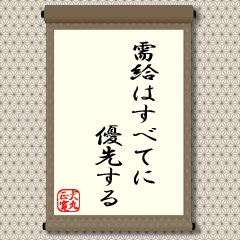 需給はすべてに
優先する